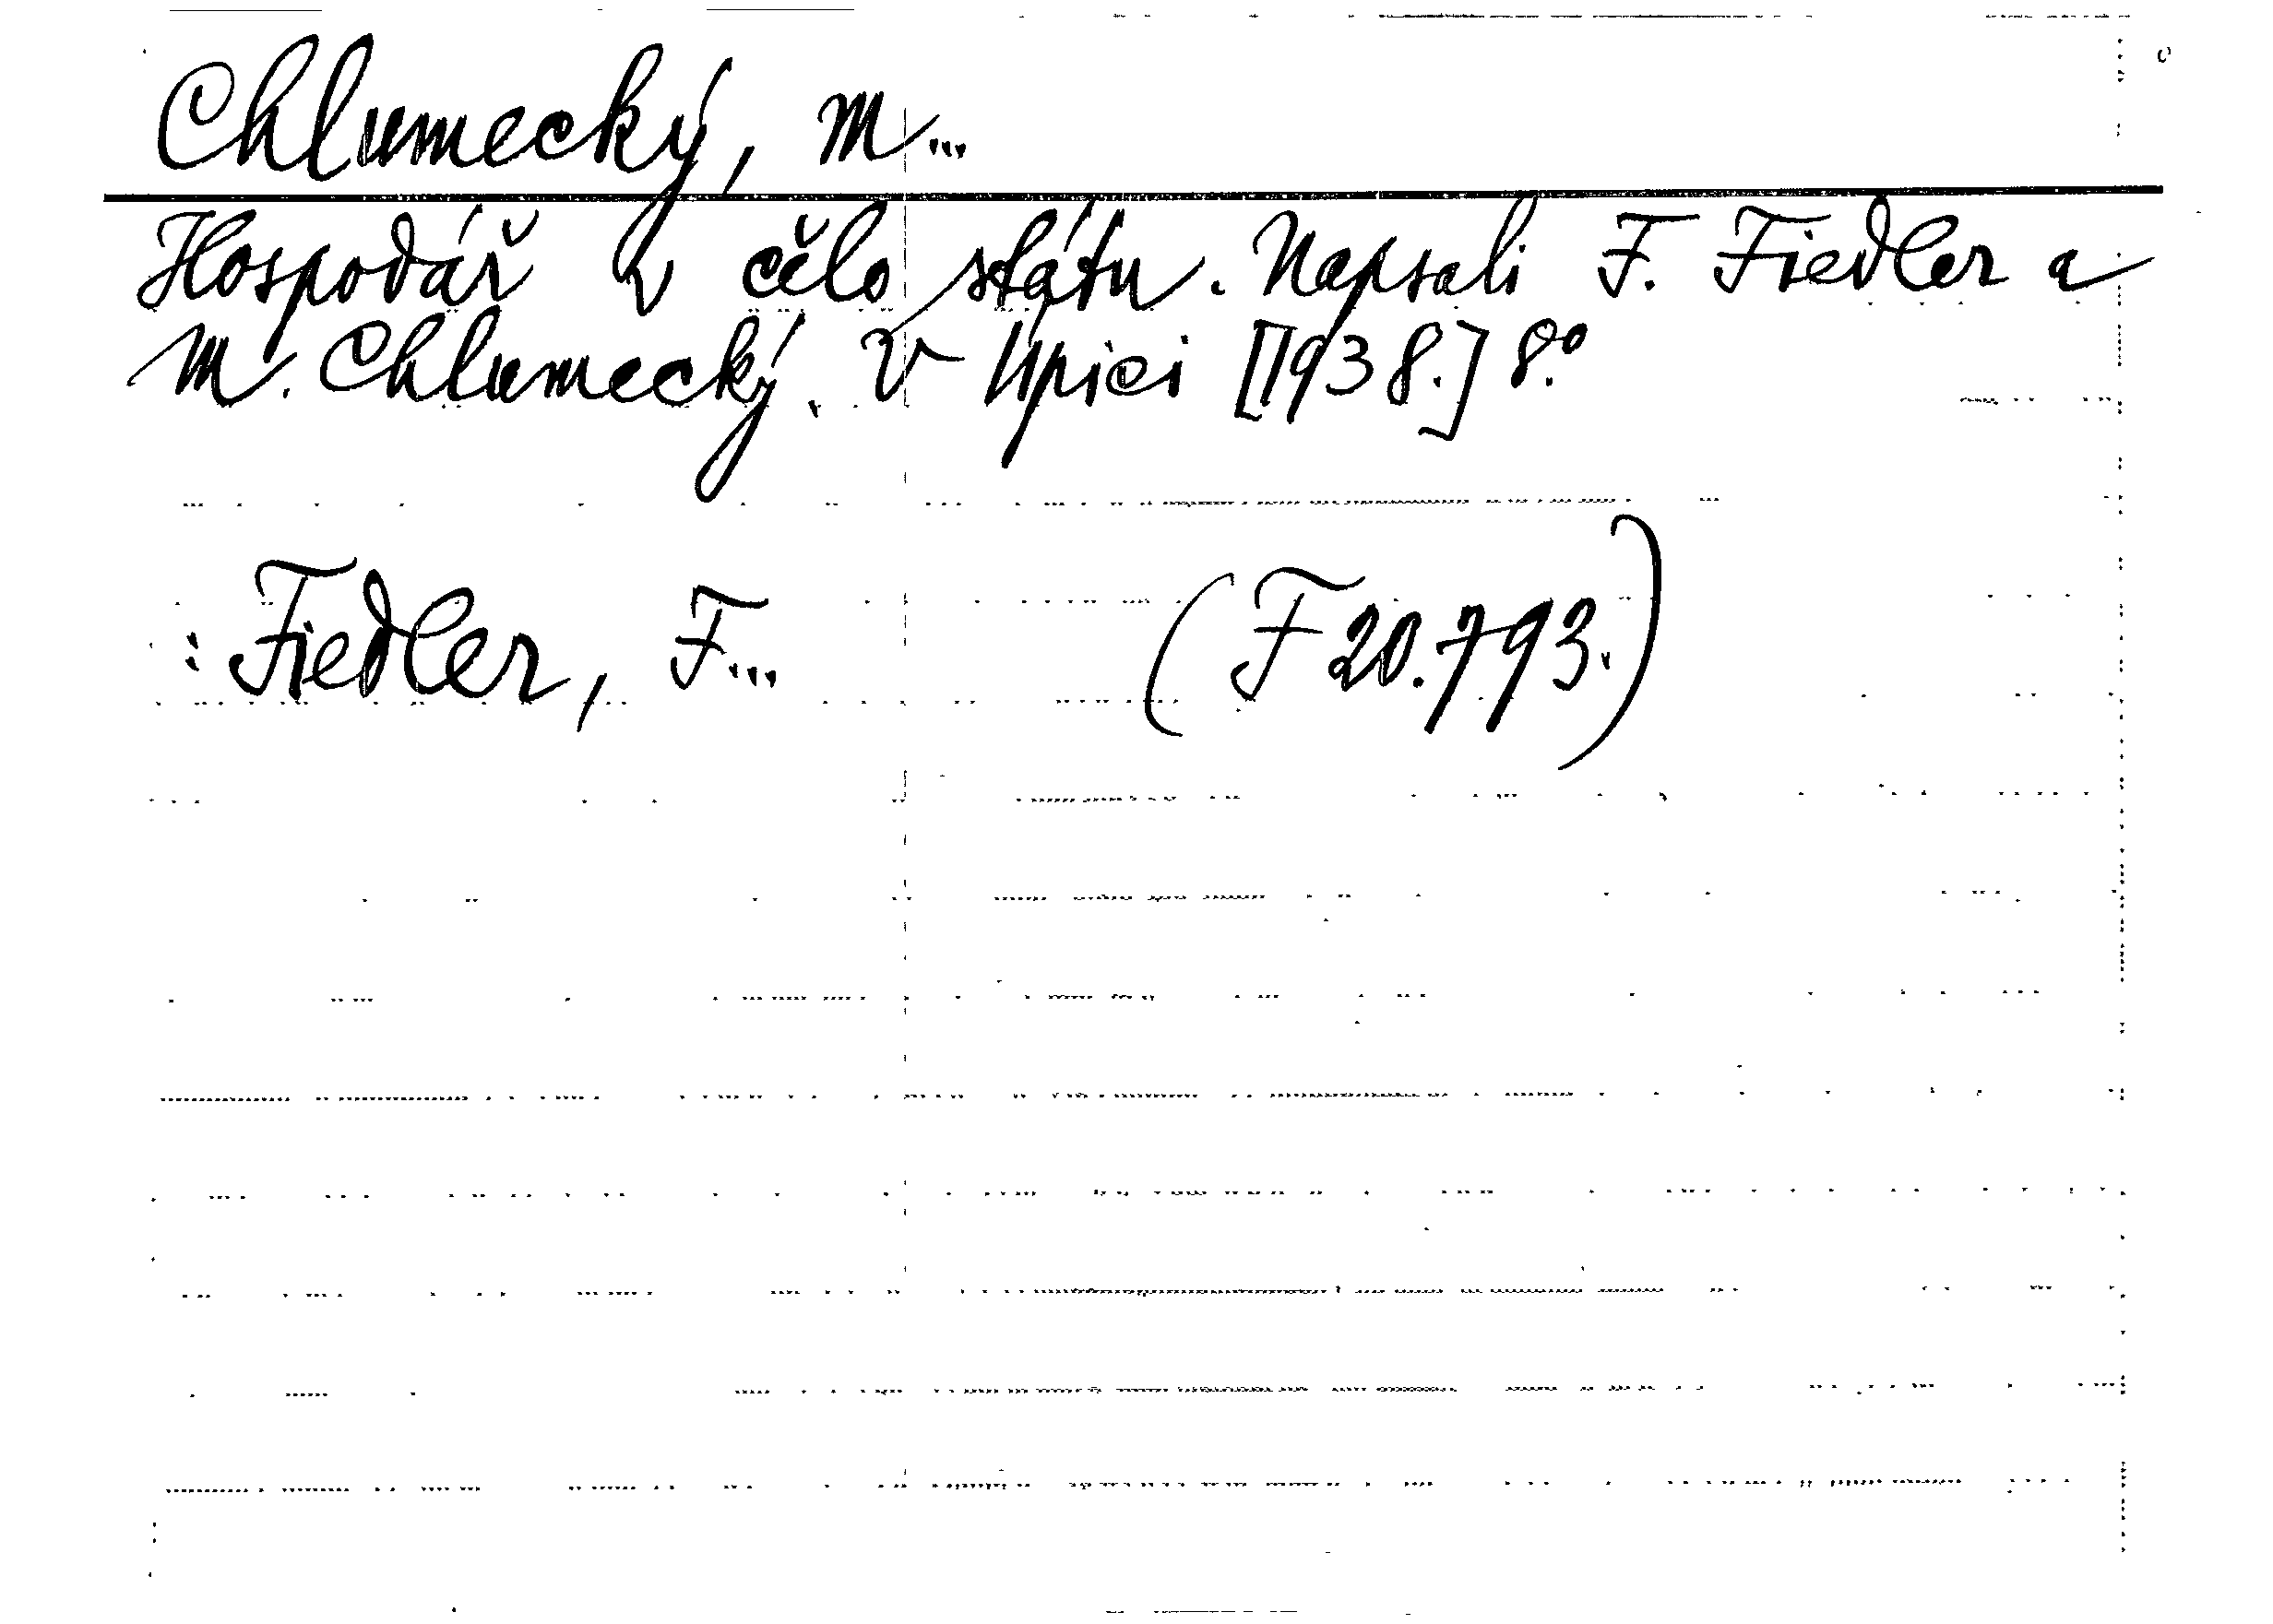 Chlumecký, M...
Hospodář v čelo státu. Napsali F. Fiedler a
M. Chlumecký. V Úpici [1938.] 8.°
: Fiedler, F...
(F 20.793.)